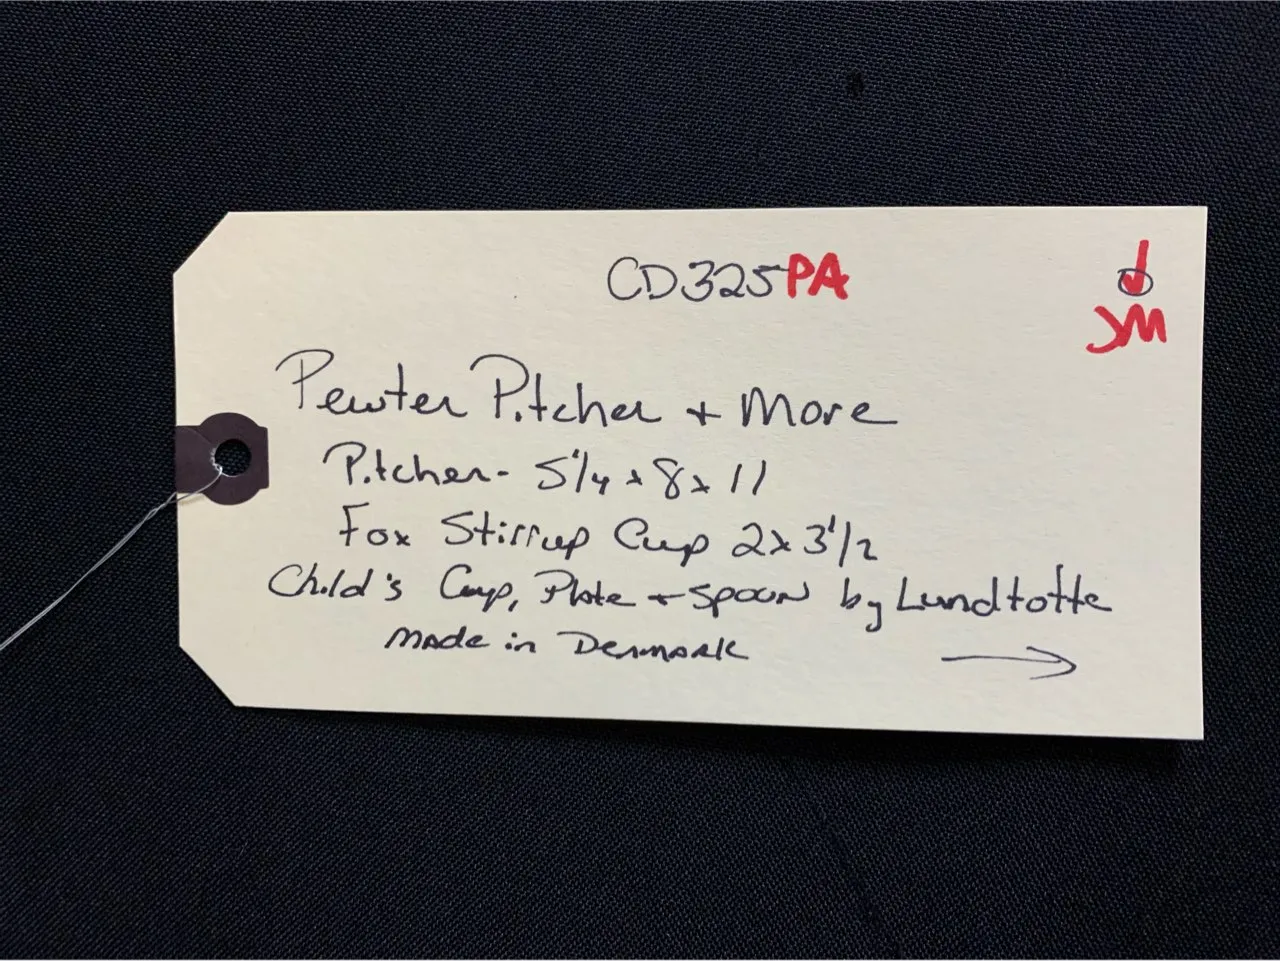 CD325PA
JM
Pewter Pitcher + More
Pitcher- 5 1/4 x 8 x 11
Fox Stirrup Cup 2x3 1/2
Child's Cup, Plate + Spoon by Lundtofte
made in Denmark →